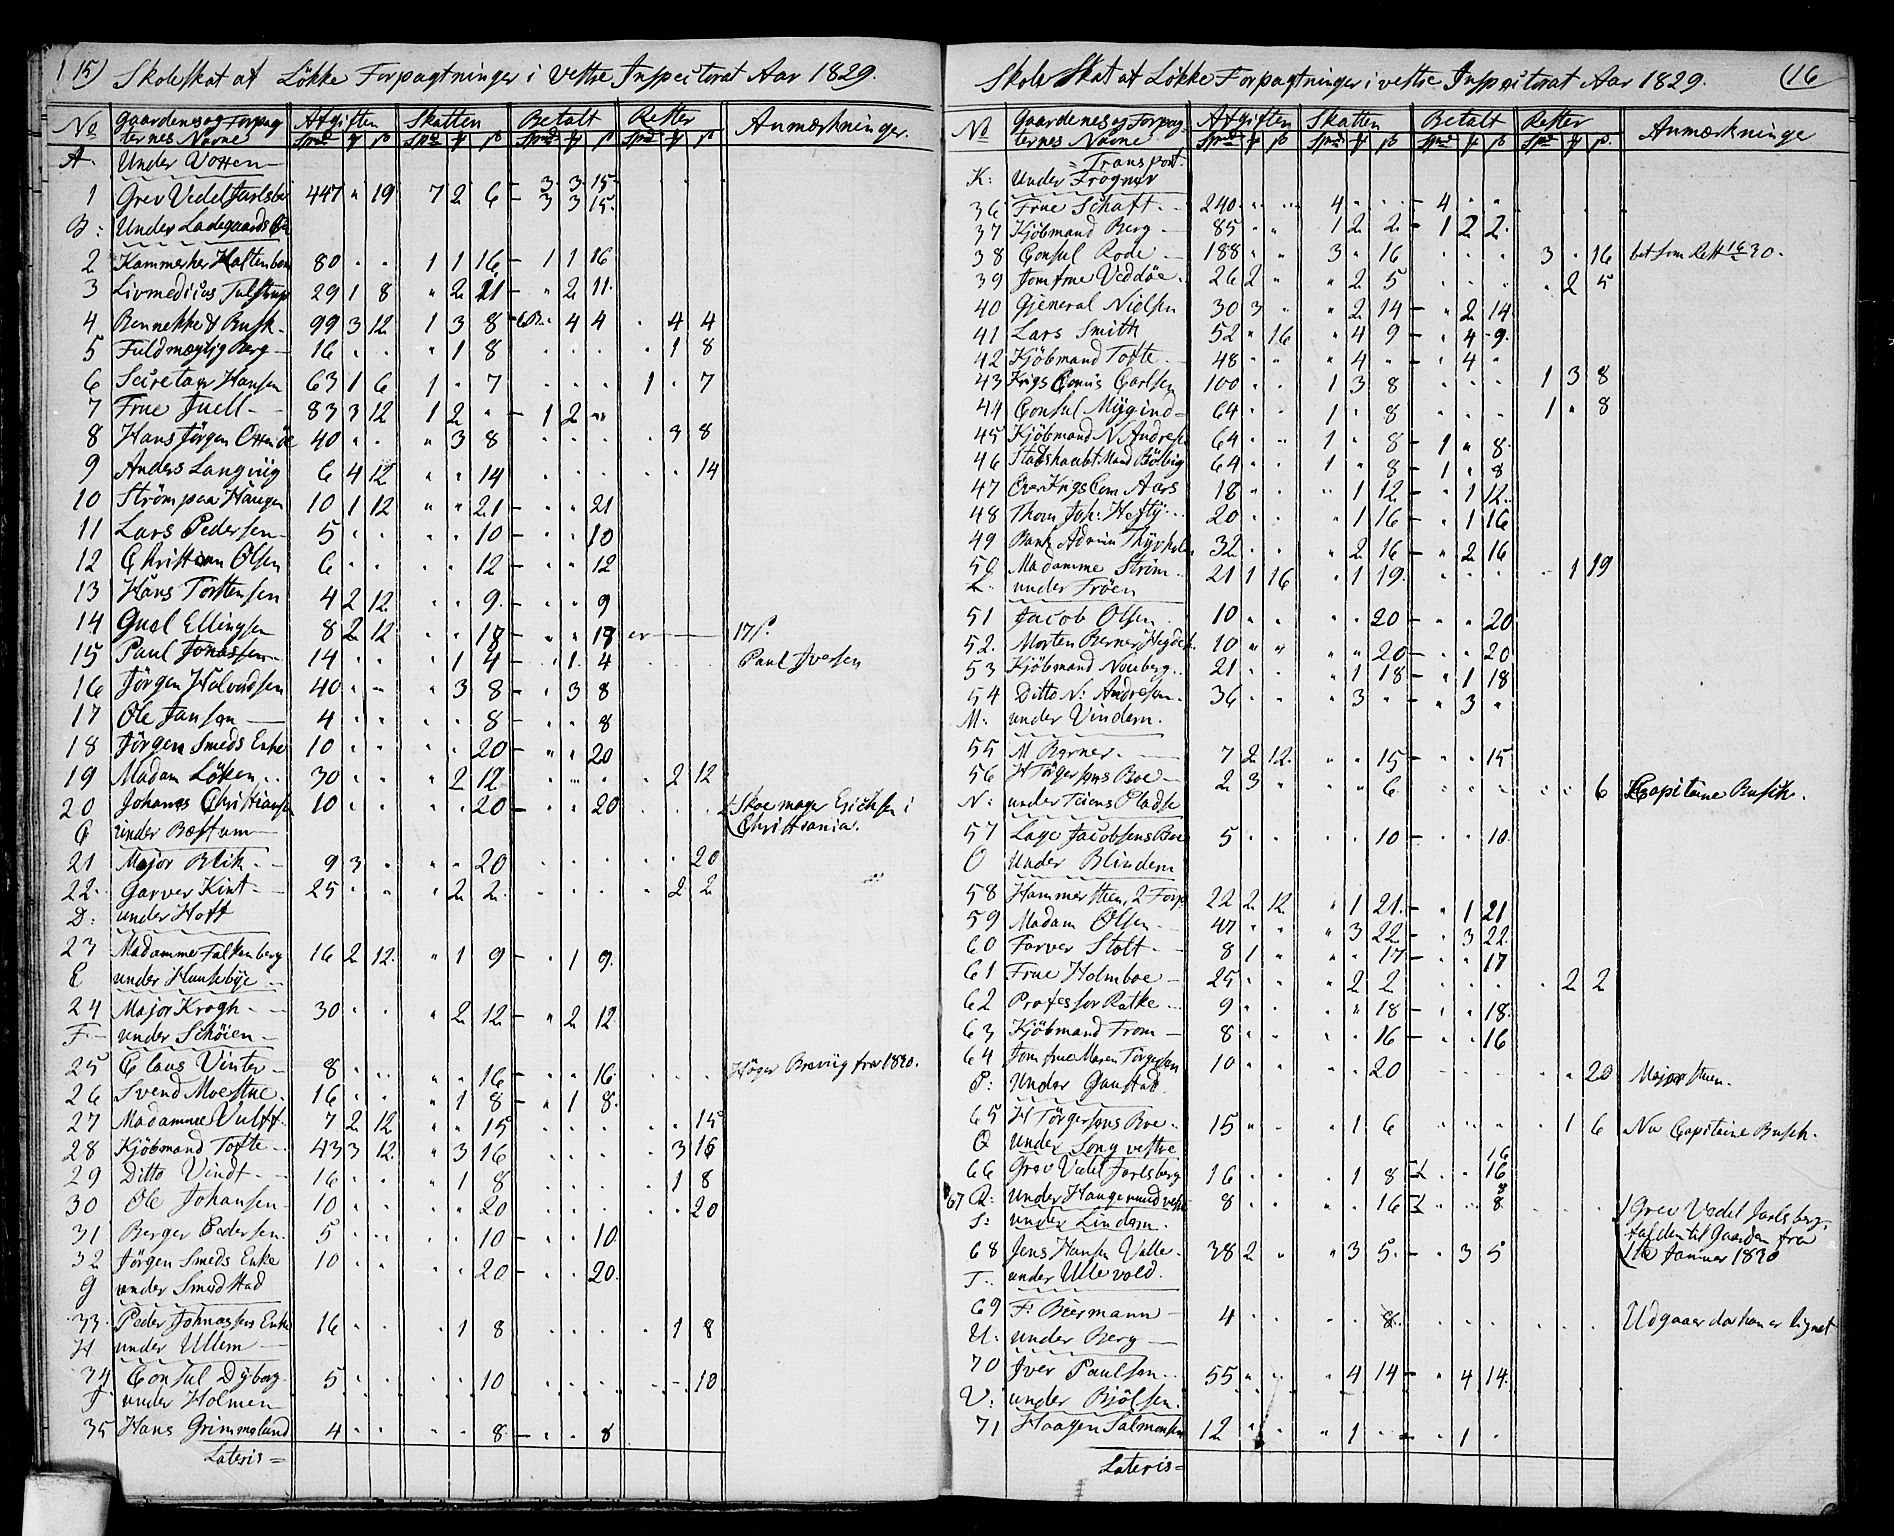 15) Skoleskat af Løkke Forpagtninger i Vestre Inspectorat Aar 1829.
No Gaardenes og Forpag- Afgiften Skatten Betalt Rester Anmærkninger.
ternes Navne Spd ß Spd ß Spd ß Spd ß
A. Under Voxen
1 Grev Vedel Jarlsber 447 " 19 7 2 6 - 3 3 15
3 3 15.
B: Under Ladegaards Øen
2 Kammerher Holtenbom 80 . . 1 1 16 - 1 1 16
3 Livmedicus Tulstrup 29 1 8 " 2 11 - " 2 11.
4 Bennekke & Busk 99 3 12 1 3 8 4 4 . 4 4
5 Fuldmægtig Berg 16 . . " 1 8 . . . . 1 8
6 Secretair Hansen 63 1 6 1 . 7 . . . 1 . 7
7 Frue Juell 83 3 12 1 2 " - 1 2 "
8 Hans Jörgen 40 . . " 3 8 . . . . 3 8
9 Anders Langviig 6 4 12 " " 14 . . . . . 14
10 Ström paa Haugen 10 1 12 " " 21 - . . 21
11 Lars Pedersen 5 . . . . 10 - . . 10
12 Christian Olsen 6 . . . . 12 - . . 12
13 Hans Torstensen 4 2 12 . . 9 - . . 9
14 Gusl Ellingsen 8 2 12 . . 18 - . . 18 er 17ß.
15 Paul Jonassen 14 . . . 1 4 - . 1 4 . . . Paul Ivesen
16 Jörgen Halvorsen 40 . . " 3 8 - . 3 8
17 Ole Jansen 4 . . . . 8 - . . 8
18 Jörgen Smeds Enke 10 . . . . 20 - . . 20
19 Madam Löken 30 . . . 2 12 . . . . 2 12
20 Johannes Christiansen 10 . . . . 20 - . . 20 . . . Skoemager Erichsen i
C under Bestum Christiania.
21 Major Blik 9 3 . . . 20 . . . . . 20
22 Garver Kint 25 . . . 2 2 . . . . 2 2
D: under Hoff
23 Madamme Falkenberg 16 2 12 . 1 9 - . 1 9
E under Huusebye
24 Major Krogh 30 . . . 2 12 - . 2 12
F under Schöien
25 Claus Vinter 8 . . . . 16 - . . 16 . . . Höger Breviig fra 1830.
26 Svend Moestue 16 . . " 1 8 - . 1 8
27 Madamme Vulff 7 2 12 . . 15 . . . . . 15
28 Kjöbmand Tofte 43 3 12 . 3 16 . . . . 3 16
29 Ditto Vindt 16 . . . 1 8 . . . . 1 8
30 Ole Johansen 10 . . . . 20 . . . . . 20
31 Berger Pedersen 5 . . . . 10 - . . 10
32 Jörgen Smeds Enke 10 . . . . 20 - . . 20
G under Smedstad
33 Peder Johnassens Enke 16 . . . 1 8 . . . . 1 8
H under Ullern
34 Consul Dyborg 5 . . . . 10 . . . . . 10
J under Holmen
35 Hans Grimmslund 4 . . . . 8 - . . 8
Lateris =
Skole Skat af Løkke Forpagtninger i vestre Inspectorat Aar 1829. (16
No Gaardenes og Forpag- Afgiften Skatten Betalt Rester Anmærkninge
ternes Navne Spd ß Spd ß Spd ß Spd ß
Transport.
K: Under Frogner
36 Frue Schaft 240 . . 4 . . - 4 . .
37 Kjöbmand Berg 85 . . 1 2 2 - 1 2 2
38 Consul Rode 188 . . 3 . 16 . . . 3 . 16 bet som Rest 30.
39 Jomfrue Veddöe 26 2 . " 2 5 . . . . 2 5
40 Gjeneral Nielsen 30 3 . " 2 14 - " 2 14
41 Lars Smith 52 . 16 " 4 9 - . 4 9
42 Kjöbmand Tofte 48 . . " 4 " - . 4 .
43 Krigs Comis Carlsen 100 . . 1 3 8 . . . 1 3 8
44 Consul Mygind 64 . . 1 . 8 . . . 1 . 8
45 Kjöbmand N Andresen 64 . . 1 . 8 - 1 . 8
46 Stadshaubtmand 64 . . 1 . 8 - 1 . 8
47 Over Krigs Com Aars 18 . . " 1 12 - . 1 12
48 Thom Joh: Hefty 20 . . . 1 16 - . 1 16
49 Bank Admin Thyrholm 32 . . . 2 16 - . 2 16
50 Madamme Ström 21 1 16 . 1 19 . . . . 1 19
L. under Fröen
51 Jacob Olsen 10 . . . . 20 - . . 20
52. Morten Berner 10 . . . . 20 - . . 20
53 Kjöbmand Noreberg 21 . . . 1 18 - . 1 18
54 Ditto N: Andresen 36 . . . 3 . - . 3 .
M: under Vindern.
55 M Berner 7 2 12 . . 15 - . . 15
56 H Törgersens Boe 2 3 . . . 6 . . . . . 6 Capitaine Busch.
N: under Teiens Pladse
57 Lage Jacobsens Boe 5 . . . . 10 - . . 10
O Under Blindern
58 Hammersteen, 2 Forp 22 2 12 . 1 21 - . 1 21
59 Madam Olsen 47 . . . 3 22 - . 3 22
60 Farver Stolt 8 1 . . . 17 - . . 17
61 Frue Holmboe 25 . . . 2 2 . . . . 2 2
62 Professor Ratke 9 . . . . 18 - . . 18
63 Kjöbmand From 8 . . . . 16 - . . 16
64 Jomfrue Maren Törgersen 10 . . . . 20 . . . . . 20 Majorsteen.
P: Under Gaustad
65 H Törgersens Boe 15 . . . 1 6 . . . . 1 6 Nu Capitaine Busch.
Q under Song vestre 16
66 Grev Vedel Jarlsberg 16 . . . 1 8 . . 16
67 R: under Haugerund vestre 8 . . . . 16 . . 8 . . . Grev Vedel Jarlsberg,
S: under Lindern. falden til Gaarden fra
68 Jens Hansen Valle 38 2 . . 3 5 - . 3 5 1te Januar 1830
T: under Ullevold.
69 F: Biermann 4 . . . . 8 . . . . . . Udgaaer da han er lignet
U: under Berg
70 Iver Paulsen 55 . . . 4 14 - . 4 14
V: under Bjölsen
71 Haagen Salmonsen 12 . . . 1 . - . 1 .
Lateris =